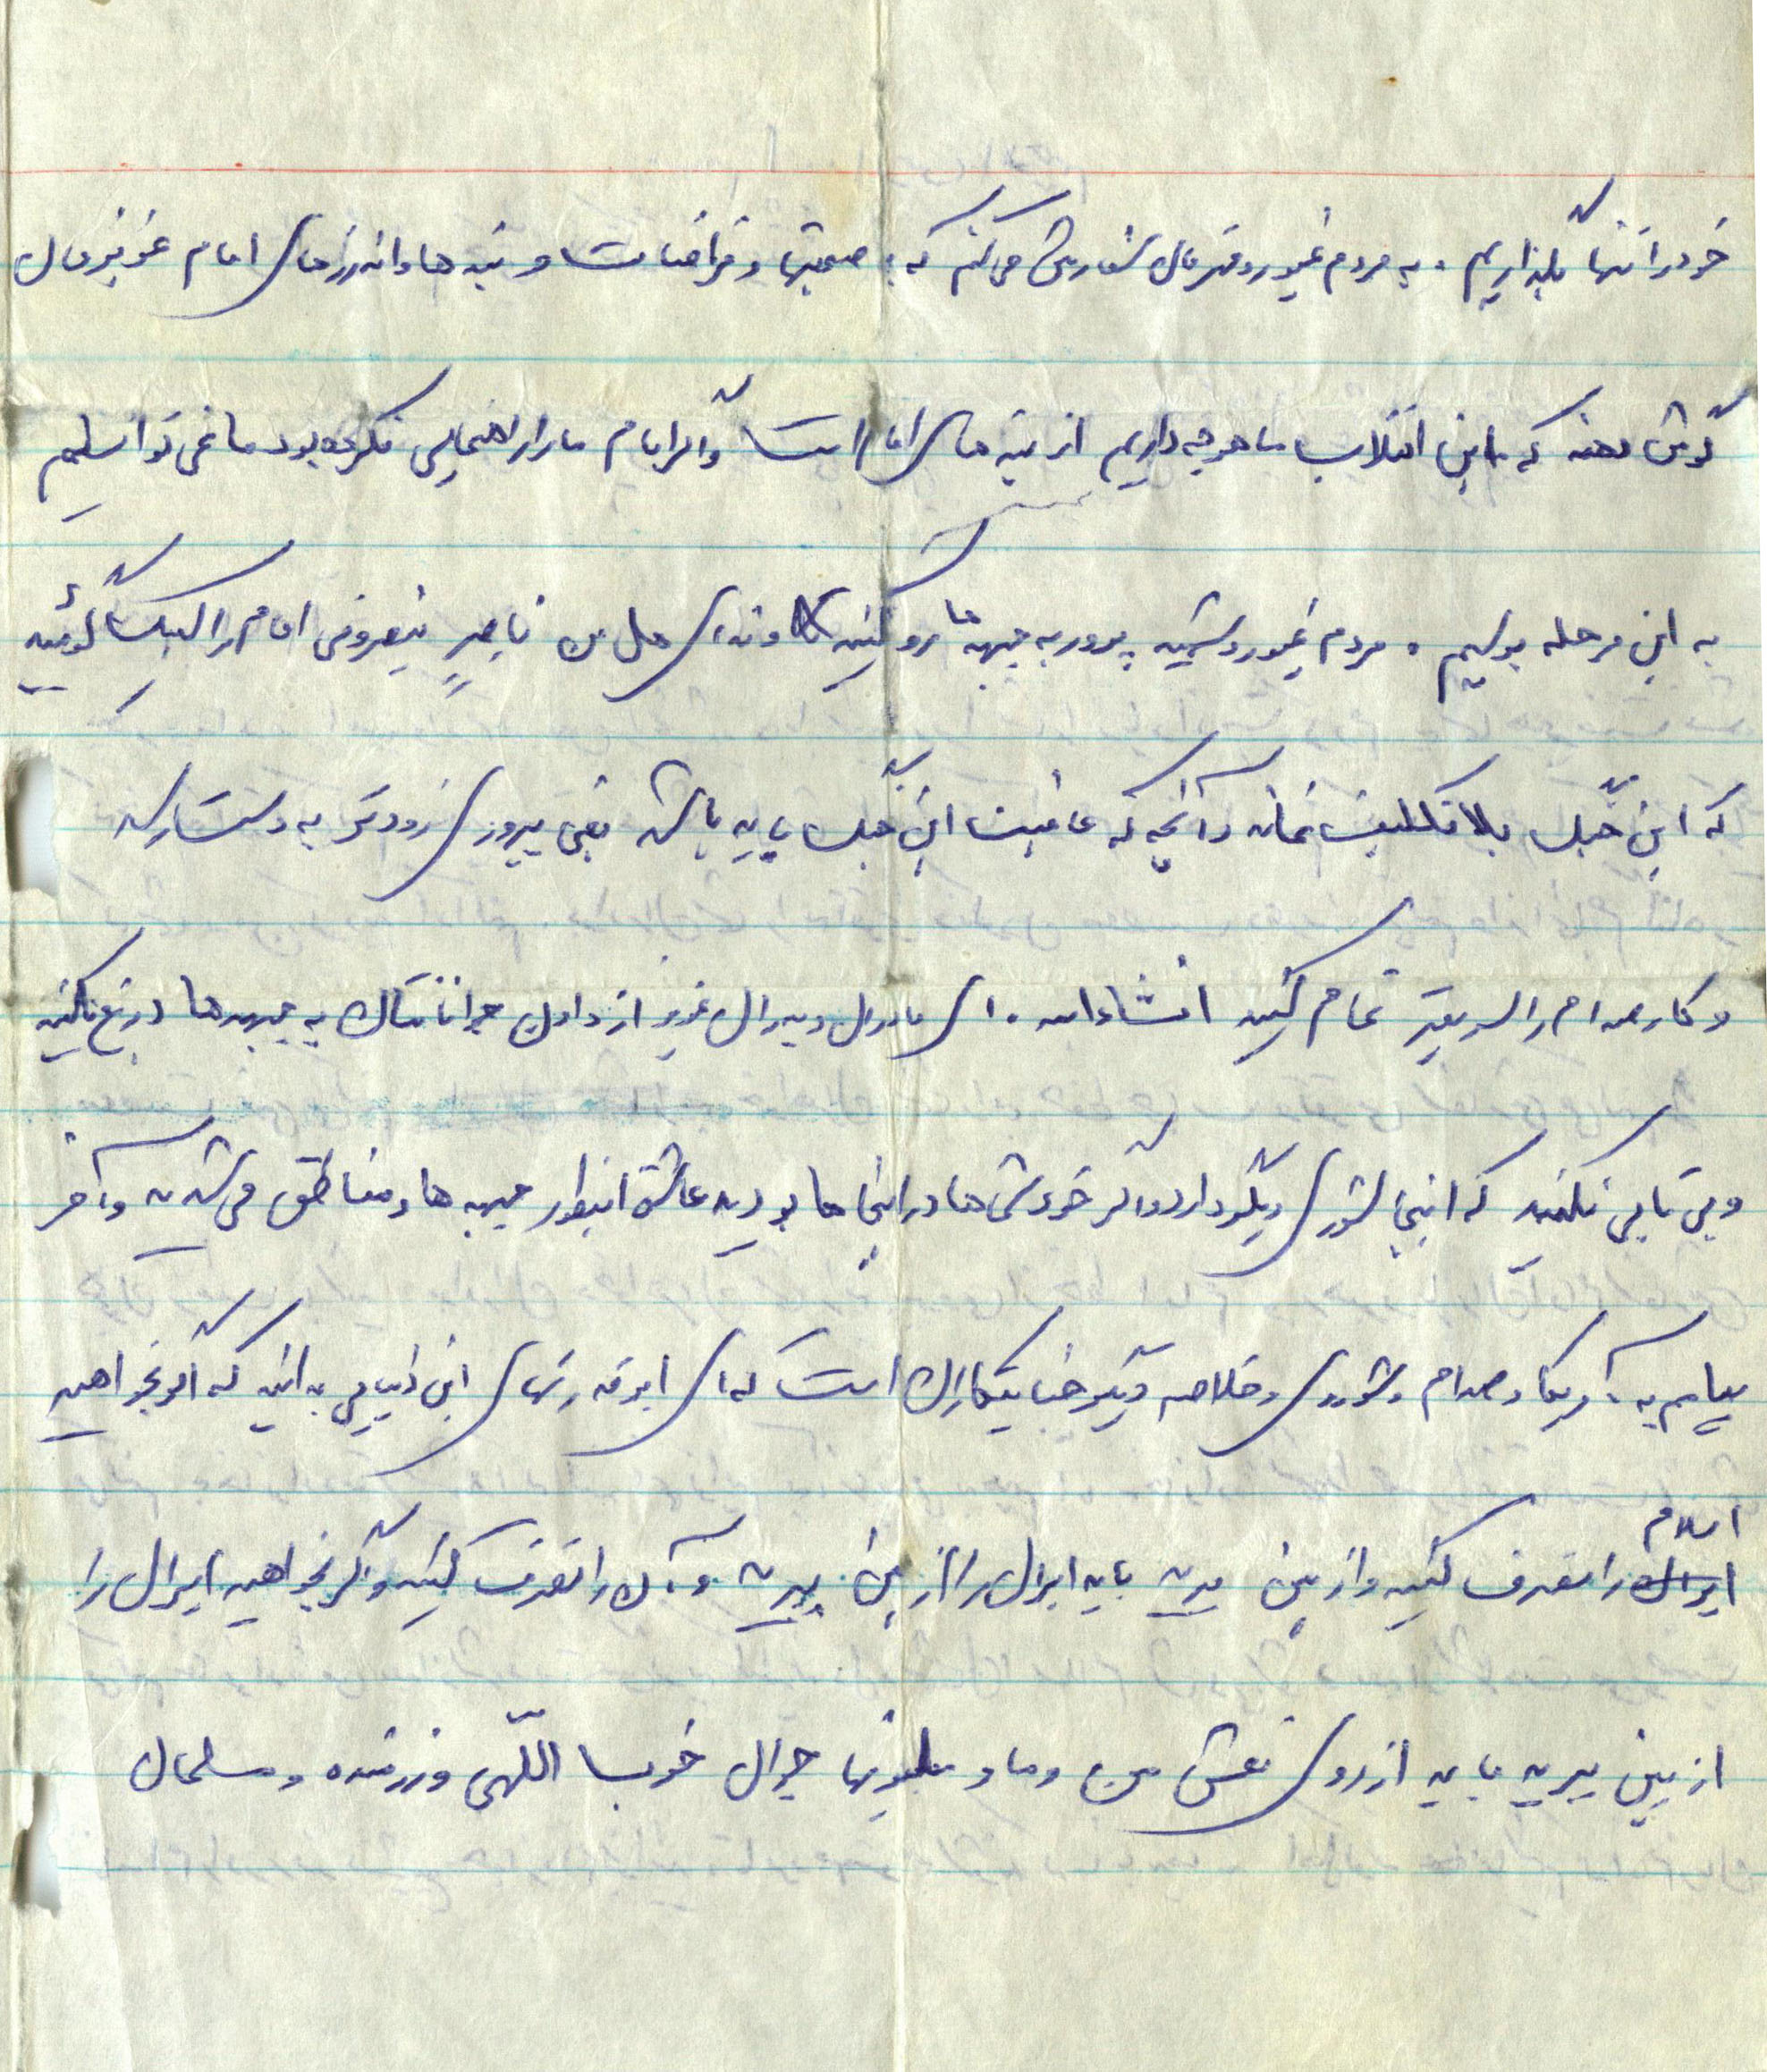 خود را تنها بگذاریم . به مردم غیور و قهرمان سفارش می کنم که : صحبتها و فراضات و پندها و اندرزهای امام عزیزمان
گوش دهند که این انقلاب ما هرچه داریم از پندهای امام است و اگر امام ما را راهنمایی نکرده بود ما نمی توانستیم
به این مرحله برسیم . مردم غیور و شهید پرور به جبهه ها رو کنید و ندای هل من ناصرٍ ینصرونی امام را لبیک گوئید
که این جنگ بلاتکلیف نماند و آنچه که عاقبت این جنگ باید باشد یعنی پیروزی زودتر به دست آرید
و کار صدام را سریعتر تمام کنید انشاءالله . ای مادران و پدران عزیز از دادن جوانانتان به جبهه ها دریغ نکنید
و بی تابی نکنید که اینجا شوری دیگر دارد و اگر خودشما در اینجاها بودید عاشق اینطور جبهه ها و مناطق می شدید و آخر
پیامم به آمریکا و صدام و شوروی و خلاصه دیگر جنایتکاران است که ای ابرقدرتهای این دنیایی بدانید که اگر بخواهید
اسلام
ایران را تصرف کنید و از بین ببرید باید ایران را از بین ببرید و آن را تصرف کنید و اگر بخواهید ایران را
از بین ببرید باید از روی نعش من و ما و میلیونها جوان خوب اللّهی و رزمنده و مسلمان